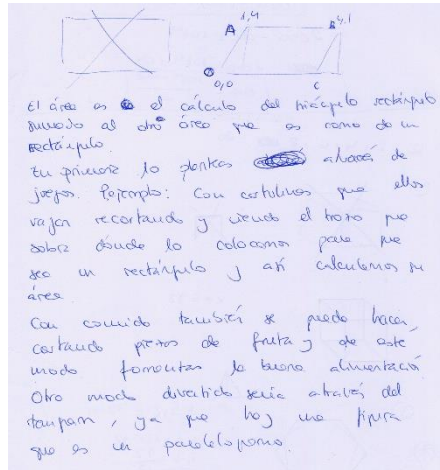 A 1,4 B 4,1
0,0 C
El área es el cálculo del triángulo rectángulo
sumado al otro área que es como de un
rectángulo.
En primaria lo planteas através de
juegos. P.ejemplo: Con cartulinas que ellos
vayan recortando y viendo el trozo que
sobra dónde lo colocamos para que
sea un rectángulo y así calculemos su
área.
Con comida también se puede hacer,
cortando piezas de fruta y de este
modo fomentas la buena alimentación
Otro modo divertido sería através del
tangram, ya que hay una figura
que es un paralelogramo.